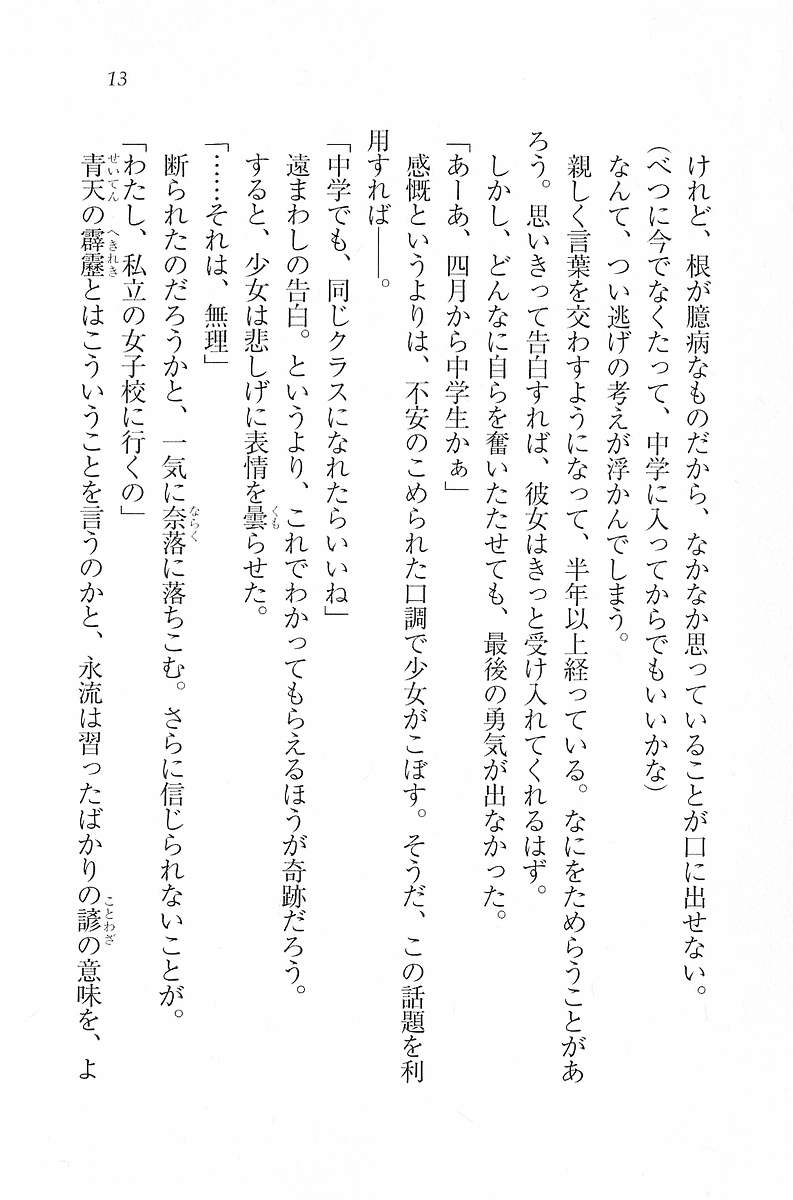 13
けれど、根が臆病なものだから、なかなか思っていることが口に出せない。
（べつに今でなくたって、中学に入ってからでもいいかな）
なんて、つい逃げの考えが浮かんでしまう。
親しく言葉を交わすようになって、半年以上経っている。なにをためらうことがあ
ろう。思いきって告白すれば、彼女はきっと受け入れてくれるはず。
しかし、どんなに自らを奮いたたせても、最後の勇気が出なかった。
「あーあ、四月から中学生かぁ」
感慨というよりは、不安のこめられた口調で少女がこぼす。そうだ、この話題を利
用すれば――。
「中学でも、同じクラスになれたらいいね」
遠まわしの告白。というより、これでわかってもらえるほうが奇跡だろう。
すると、少女は悲しげに表情を曇らせた。
「……それは、無理」
断られたのだろうかと、一気に奈落に落ちこむ。さらに信じられないことが。
「わたし、私立の女子校に行くの」
青天の霹靂とはこういうことを言うのかと、永流は習ったばかりの諺の意味を、よ